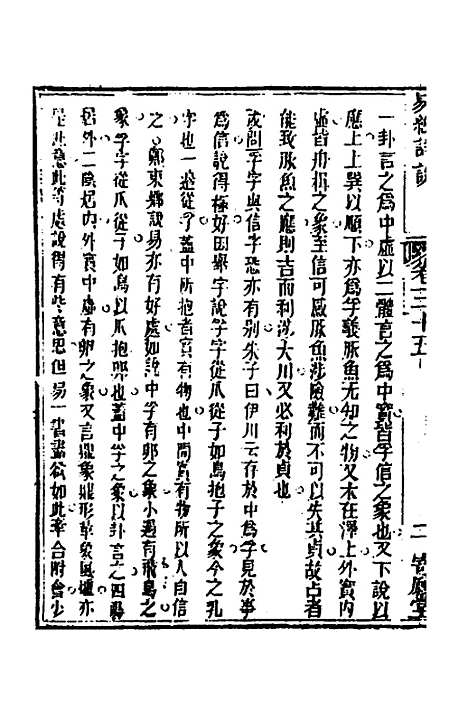 易經詳說
卷三十五
二
一卦言之為中虛以二體言之為中實皆孚信之象也又下說以
應上上巽以順下亦為孚義豚魚无知之物又木在澤上外實內
虛皆舟楫之象至信可感豚魚涉險難而不可以失其貞故占者
能致豚魚之應則吉而利涉大川又必利於貞也
或問孚字與信字恐亦有別朱子曰伊川云存於中為孚見於事
為信說得極好因舉字說孚字從爪從子如鳥抱子之象今之乳
字也一邊從孚蓋中所抱者實有物也中間實有物所以人自信
之 鄭東卿說易亦有好處如說中孚有卵之象小過有飛鳥之
象孚字從爪從子如鳥以爪抱卵也蓋中孚之象以卦言之四陽
居外二陰居內外實中虛有卵之象又言鼎象鼎形革象風爐亦
是此意此等處說得有些意思但易一書盡欲如此牽合附會少